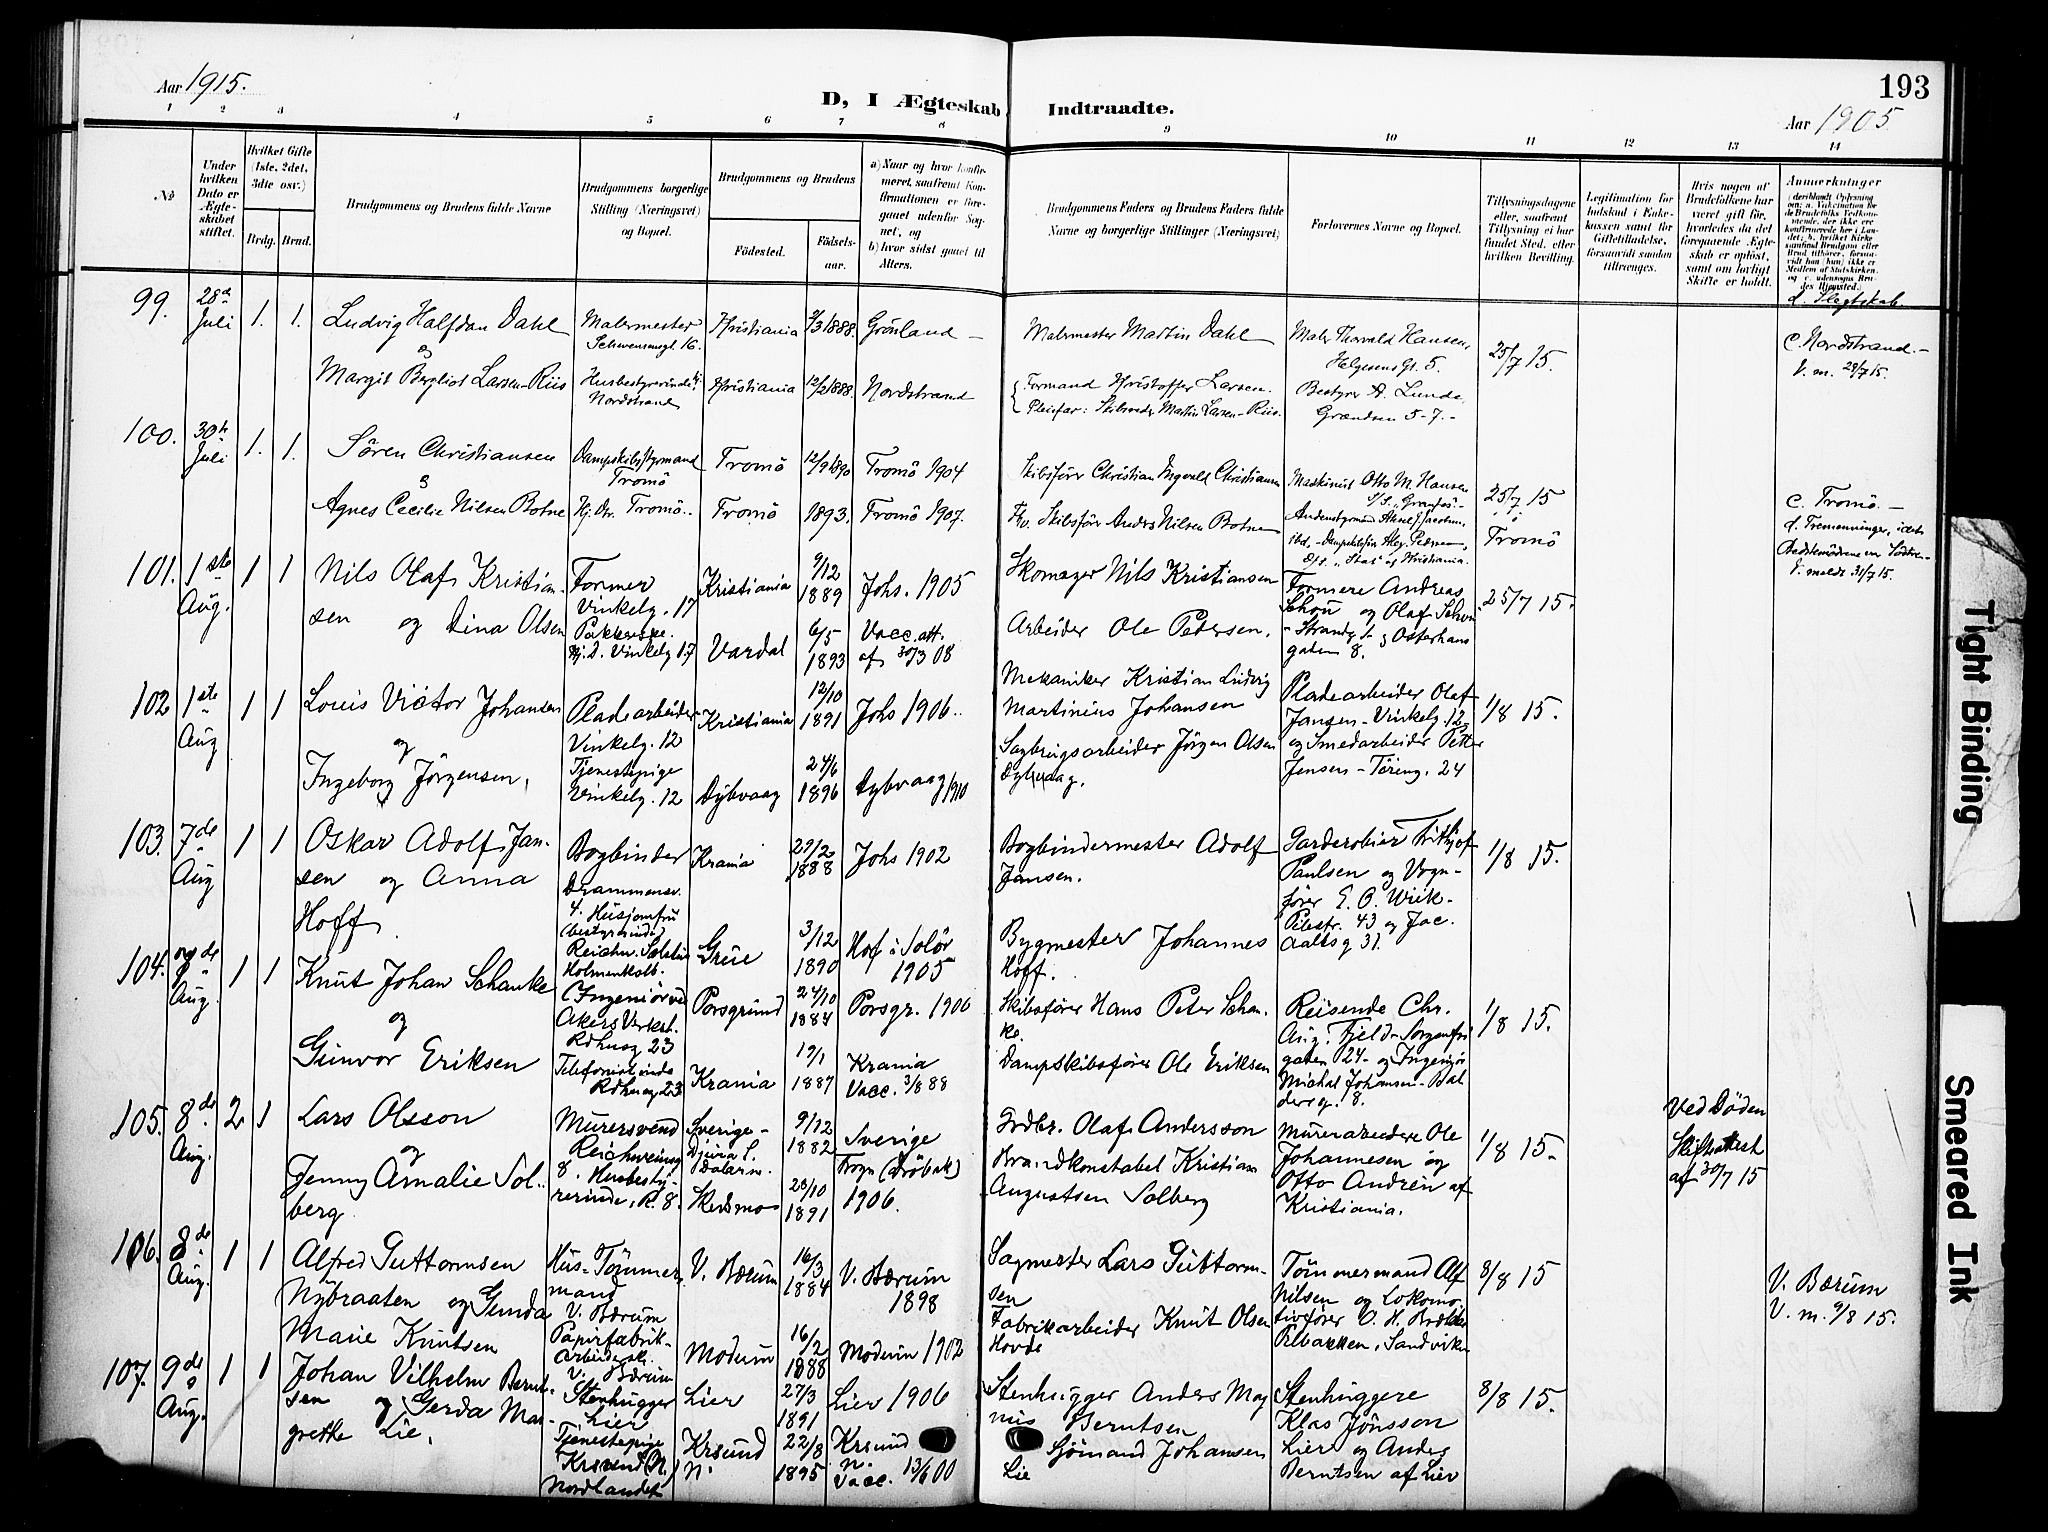 Aar 1915.
D, I Ægteskab Indtraadte.
193
Aar 1905
1 2 3 4 5 6 7 8 9 10 11 12 13 14
No
Under hvilken Dato er Ægteskabet stiftet.
Hvilket Gifte (1ste, 2det, 3die osv.)
Brdg. Brud.
Brudgommens og Brudens fulde Navne
Brudgommens borgerlige Stilling (Næringsvei) og Bopæl.
Brudgommens og Brudens
Fødested.
Fødselsaar.
a) Naar og hvor konfirmeret, saafremt Konfirmationen er foregaaet udenfor Sognet, og
b) hvor sidst gaaet til Alters.
Brudgommens Faders og Brudens Faders fulde Navne og borgerlige Stillinger (Næringsvei)
Forlovernes Navne og Bopæl.
Tillysningsdagene eller, saafremt Tillysning ei har fundet Sted, efter hvilken Bevilling.
Legitimation for Indskud i Enkekassen samt for Giftetilladelse, forsaavidt saadan tiltrænges.
Hvis nogen af Brudefolkene har været gift før, hvorledes da det foregaaende Ægteskab er opløst, samt om lovligt Skifte er holdt.
Anmerkninger
d. Slegtskab.
99. 28de Juli 1. 1. Ludvig Halfdan Dahl Malermester Schwensensgt. 16. Kristiania 3/3 1888. Grönland – Malermester Martin Dahl Maler Thorvald Hansen, Helgesens Gt. 5. 25/7 15. c. Nordstrand. –
V. m. 29/7 15.
og
Margit Bergliot Larsen-Riis Husbestyrerinde Nordstrand Kristiania 12/2 1888. Nordstrand Formand Kristoffer Larsen. Bestyrer A. Lunde,
Pleiefar: Martin Larsen-Riis. Grændsen 5-7. –
100. 30te Juli 1. 1. Sören Christiansen Dampskibsstyrmand Tromö Tromö 12/9 1890 Tromö 1904 Skibsförer Christian Ingvald Christiansen Maskinist Otto M. Hansen 25/7 15 c. Tromö. –
og
Agnes Cecilie Nilsen Botne Hj. Dtr. Tromö. Tromö 1893. Tromö 1907. Fhv. Skibsförer Anders Nilsen Botne Tromö
V. meldt 31/7 15.
101. 1ste Aug. 1 1 Nils Olaf Kristiansen og Dina Olsen Former Vinkelg. 17 Kristiania 9/12 1889 Johs. 1905 Skomager Nils Kristiansen Formere Andreas Schou og Olaf Schou – Strandg. og Osterhausgaden 8. 25/7 15.
Hj. D. Vinkelg 17 Vardal 6/5 1893 Vacc. att. af 30/3 08 Arbeider Ole Pedersen.
102 1ste Aug 1 1 Louis Victor Johansen Pladearbeider Vinkelg. 12 Kristiania 12/10 1891 Johs 1906. Mekaniker Kristian Ludvig Martinius Johansen Pladearbeider Olaf Jansen – Vinkelg. 12 og Smedarbeider Petter Jensen – 24 1/8 15.
og
Ingeborg Jörgensen, Tjenestepige Vinkelg. 12 Dybvaag 24/6 1896 Dybvaag 1910 Sagbrugsarbeider Jörgen Olsen Dybvaag.
103. 7de Aug 1 1 Oskar Adolf Jansen og Anna Hoff. Bogbinder Drammensv. 4. Krania 29/2 1888 Johs 1902 Bogbindermester Adolf Jansen. Garderobier Frithjof Paulsen og Vognförer E. O. Wiik – Pilestr. 43 og Jac. Aallsg 31. 1/8 15.
Husjomfru (bestyrerinde) Holmenkolb. Grue 3/12 1890 Hof i Solör 1905 Bygmester Johannes Hoff.
104. 7de Aug. 1 1 Knut Johan Schanke Ingeniör ved Akers Verkst. Rdhusg 23 Porsgrund 24/10 1884 Porsgr. 1900 Skibsförer Hans Peter Schanke. Reisende Chr. Aug. Fjeld – Sorgenfrigaden 24 – og Ingeniör Michal Johansen – Baldersg. 8. 1/8 15.
og
Gunvor Eriksen Telefonistinde Rdhusg 23 Krania 19/1 1887 Krania Vacc. 3/8 88 Dampskibsförer Ole Eriksen
105. 8de Aug. 2 1 Lars Olsson Murersvend Sverige – Djura S. Dalarne. 9/12 1882 Sverige Grdbr. Olaf Andersson Murerarbeidere Ole Johannesen og Otto Andrén af Kristiania. 1/8 15. Ved Döden Skifteattest af 30/7 15
og
Jenny Amalie Solberg Husbestyrerinde, R. 8. Skedsmo 20/10 1891 Frogn (Dröbak) 1906. Brandkonstabel Kristian Augustsen Solberg
106. 8de Aug. 1 1 Alfred Guttormsen Nybraaten og Gunda Marie Knutsen Hus-Tömmermand V. Bærum V. Bærum 16/3 1884 V. Bærum 1898 Sagmester Lars Guttormsen Tömmermand Alf Nilsen og Lokomotivförer O. H. Sandviken 8/8 15 V. Bærum
V. m. 9/8 15.
Papirfabrik-Arbeiderske. V. Bærum Modum 16/2 1888 Modum 1902 Fabrikarbeider Knut Olsen Hovde
107. 9de Aug. 1 1 Johan Vilhelm Berntsen og Gerda Margrethe Lie, Stenhugger Lier Lier 27/3 1891 Lier 1906 Stenhugger Anders Magnus Berntsen Stenhuggere Klas Jönsson Lier og Anders Berntsen af Lier 8/8 15.
Tjenestepige Krsund N. Nordlandet Krsund N. 22/8 1895 Krsund N. Vacc. 13/6 00 Sjömand Johansen Lie
Tight Binding
Smeared Ink